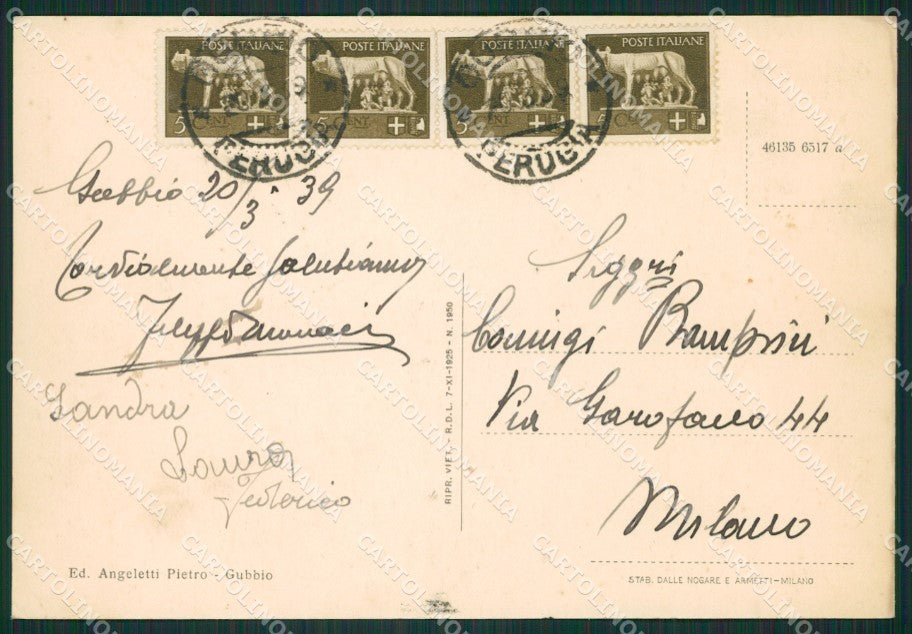 POSTE ITALIANE POSTE ITALIANE POSTE ITALIANE POSTE ITALIANE
5 CENT 5 CENT 5 CENT 5 CENT
PERUGIA PERUGIA
46135 6517 a
Gubbio 20/3 39
Cordialmente Salutiamo
Filippo Monaci
Sandra
Laura
Federico
Ed. Angeletti Pietro - Gubbio
RIPR. VIET. - R.D.L. 7-XI-1925 - N. 1950
Siggri
Coniugi Bamprini
Via Garofalo 44
Milano
STAB. DALLE NOGARE E ARMETTI-MILANO
CARTOLINOMANIA